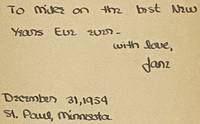 To Mike on the best New
Years Eve ever -
with love,
Jane
December 31, 1954
St. Paul, Minnesota